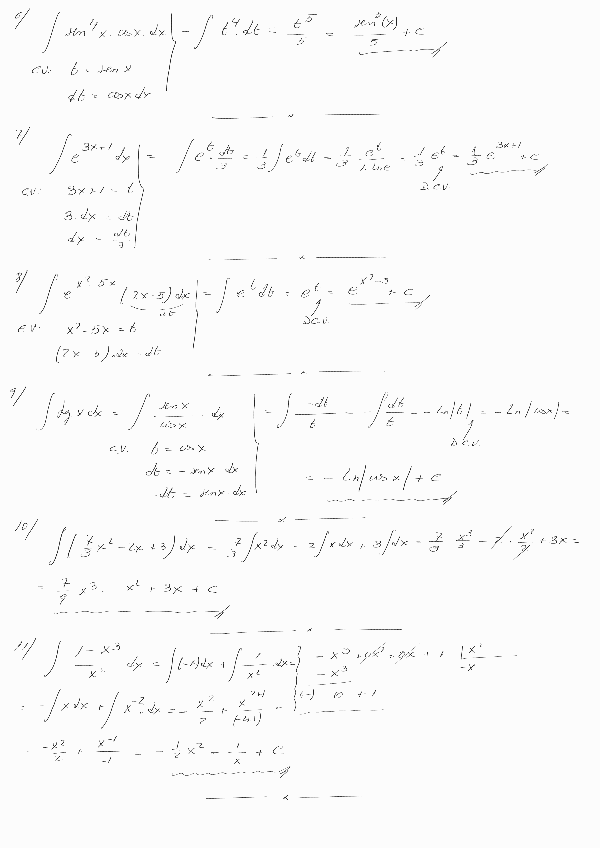 6/ ∫ sen⁴x · cosx · dx = ∫ t⁴ · dt = t⁵/5 = sen⁵(x)/5 + C
c.v. t = senx
dt = cosx dx
7/ ∫ e^(3x+1) dx = ∫ e^t · dt/3 = 1/3 ∫ e^t dt = 1/3 e^t/1·lne = 1/3 e^t = 1/3 e^(3x+1) + C
c.v. 3x+1 = t
D.C.V.
3 · dx = dt
dx = dt/3
8/ ∫ e^(x²-5x) (2x-5) dx = ∫ e^t dt = e^t = e^(x²-5) + C
dt
D.C.V.
c.v. x² - 5x = t
(2x - 5) dx = dt
9/ ∫ tg x dx = ∫ senx/cosx · dx = ∫ -dt/t = -∫ dt/t = -Ln|t| = -Ln|cosx| =
c.v. t = cosx
D.C.V.
dt = -senx dx
-dt = senx dx
= - Ln|cosx| + C
10/ ∫ (7/3 x² - 2x + 3) dx = 7/3 ∫ x² dx - 2 ∫ x dx + 3 ∫ dx = 7/3 · x³/3 - 2 · x²/2 + 3x =
= 7/9 x³ - x² + 3x + C
11/ ∫ (1 - x³)/x² dx = ∫ (-x) dx + ∫ 1/x² dx =
= -∫ x dx + ∫ x⁻² dx = -x²/2 + x^(-2+1)/(-2+1) =
= -x²/2 + x⁻¹/-1 = -1/2 x² - 1/x + C